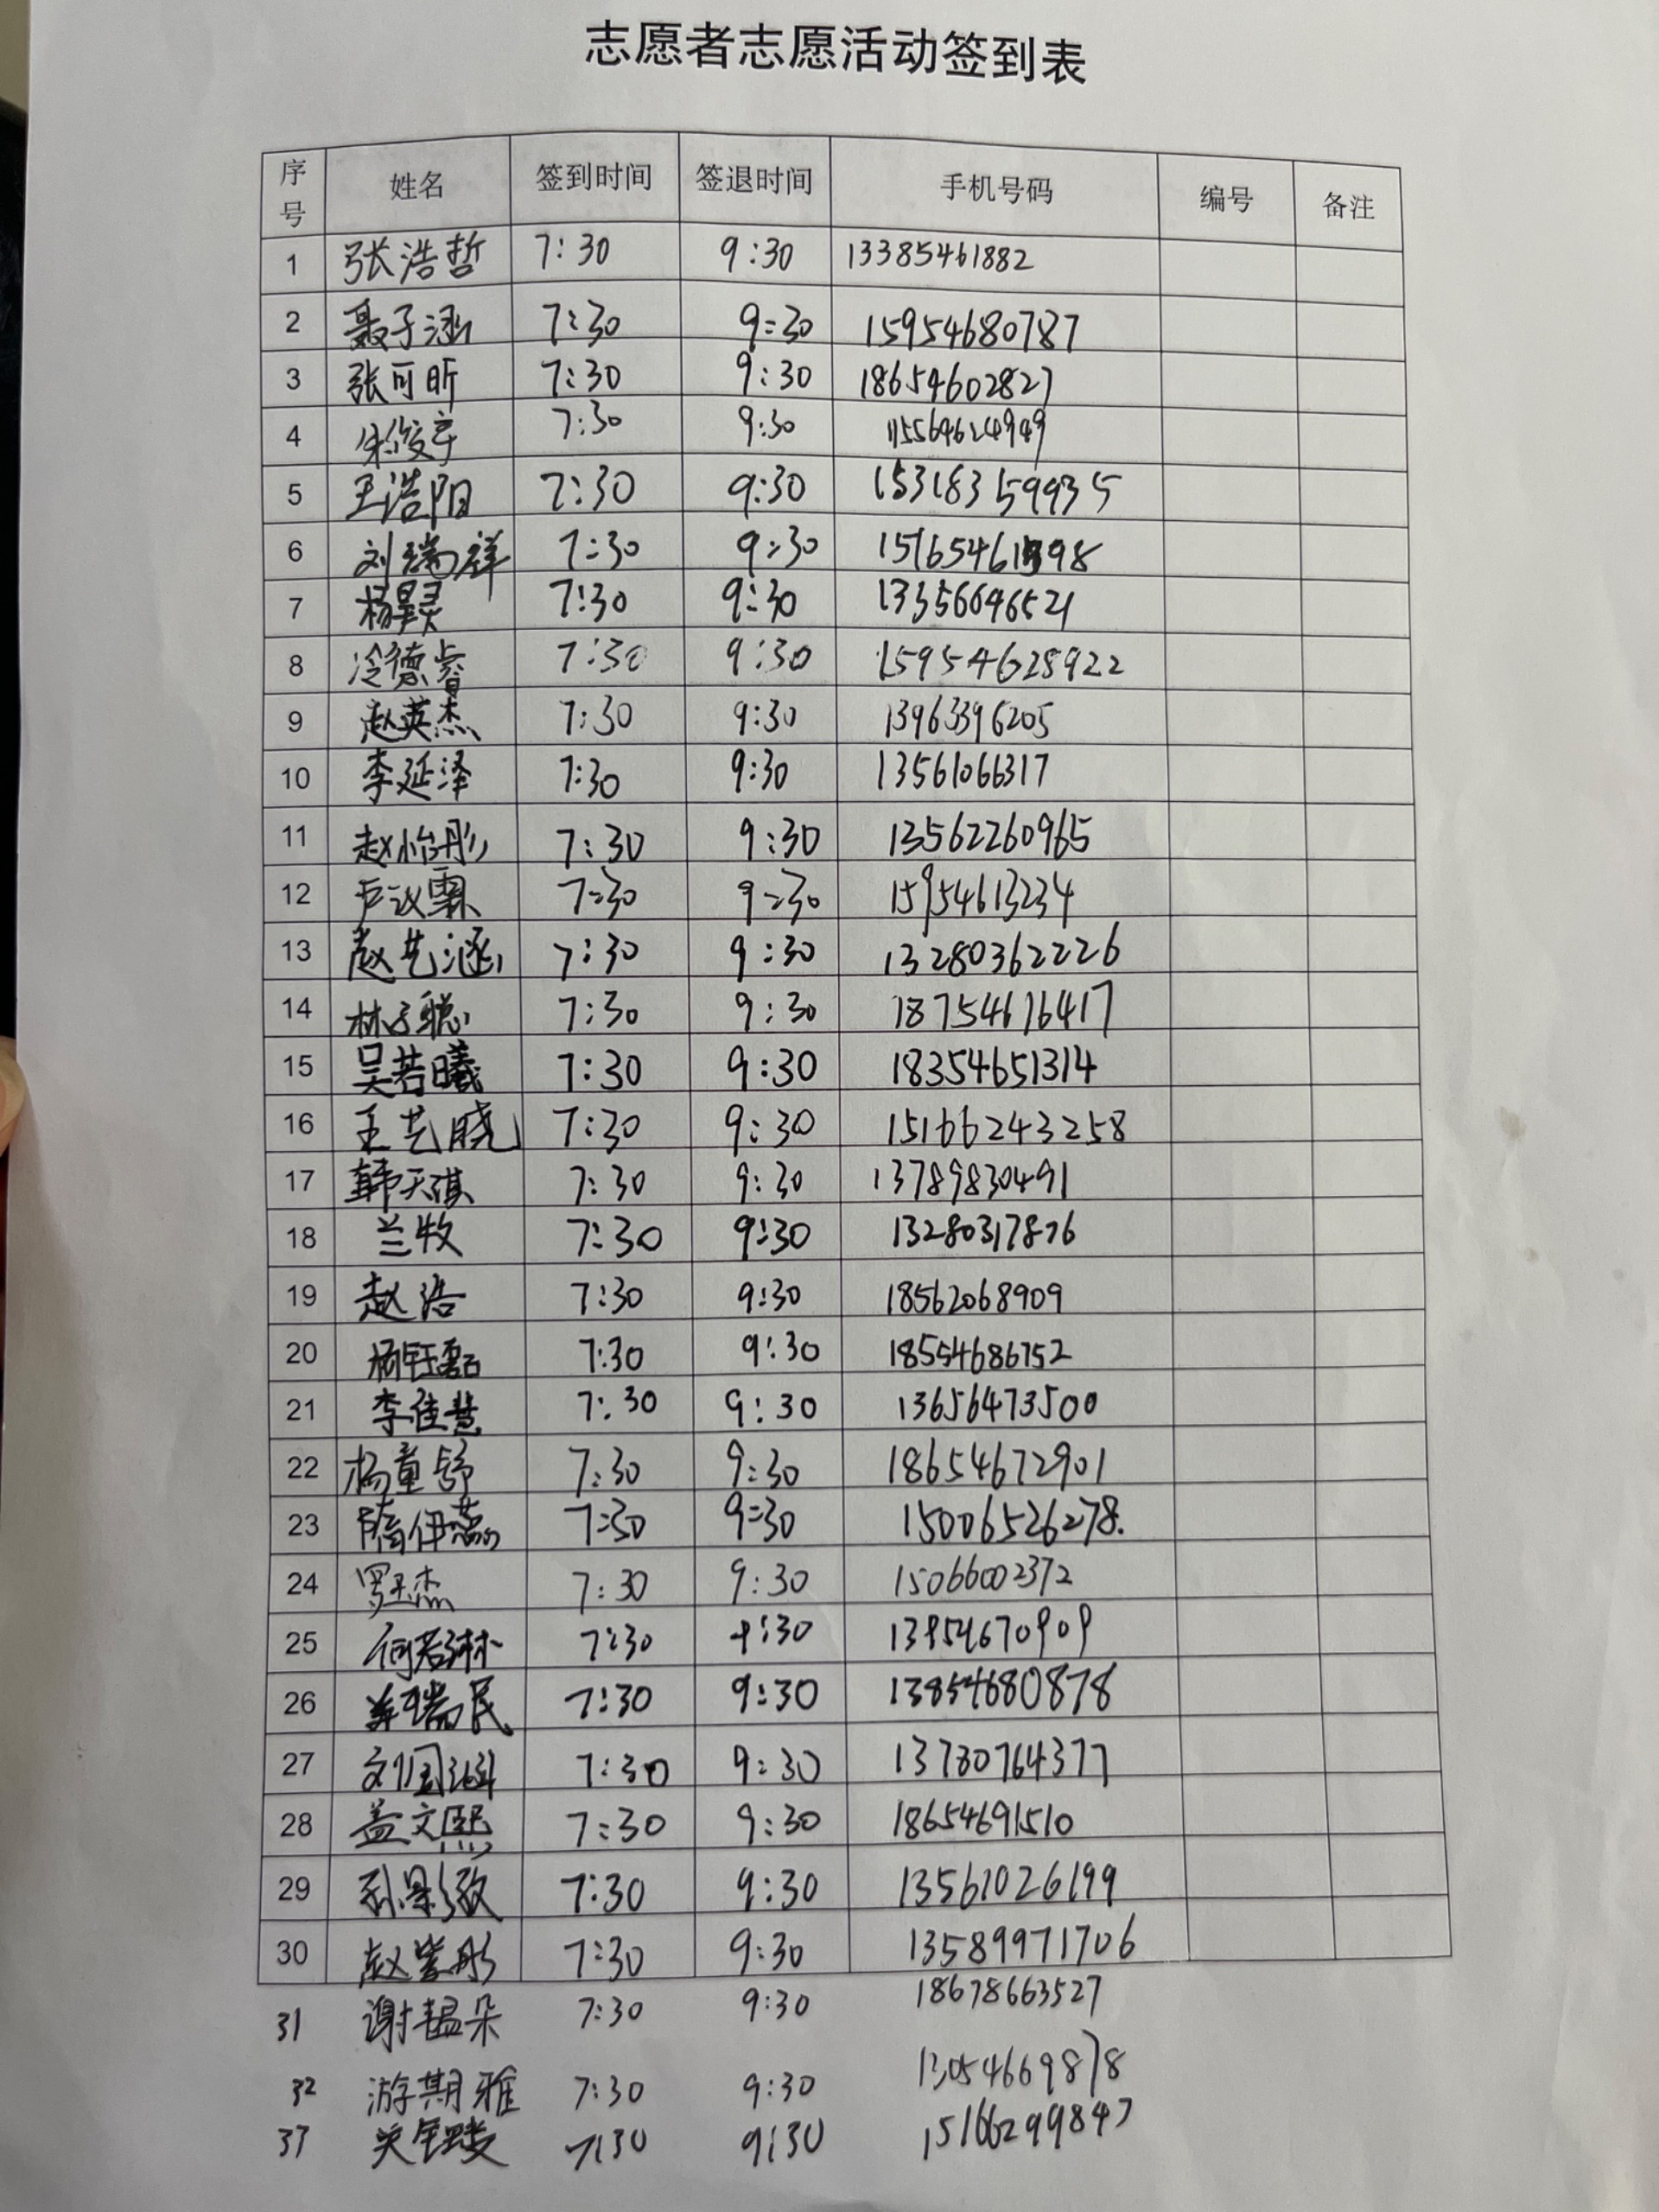 志愿者志愿活动签到表
序号 姓名 签到时间 签退时间 手机号码 编号 备注
1 张浩哲 7:30 9:30 13385461882
2 聂子涵 7:30 9:30 15954680787
3 张可昕 7:30 9:30 18654602827
4 7:30 9:30
5 王浩阳 7:30 9:30 15318359935
6 刘瑞祥 7:30 9:30
7 杨昊灵 7:30 9:30 13356646521
8 冷德睿 7:30 9:30 15954628922
9 赵英杰 7:30 9:30 13963396205
10 李延泽 7:30 9:30 13561066317
11 赵怡彤 7:30 9:30 13562260965
12 7:30 9:30 15954613234
13 赵艺涵 7:30 9:30 13280362226
14 林子聪 7:30 9:30 18754676417
15 吴若曦 7:30 9:30 18354651314
16 王艺晓 7:30 9:30 15166243258
17 韩天淇 7:30 9:30 13789830491
18 兰牧 7:30 9:30 13280317876
19 赵浩 7:30 9:30 18562068909
20 杨钰磊 7:30 9:30 18554686752
21 李佳慧 7:30 9:30 13656473500
22 杨童舒 7:30 9:30 18654672901
23 隋伊蕊 7:30 9:30 15006526278.
24 罗杰 7:30 9:30 15066002372
25 何若琳 7:30 9:30
26 7:30 9:30 13854680878
27 刘国涵 7:30 9:30 13780764377
28 盖文熙 7:30 9:30 18654691510
29 7:30 9:30 13561026199
30 赵紫彤 7:30 9:30 13589971706
31 谢韫朵 7:30 9:30 18678663527
32 游期雅 7:30 9:30 13054669878
33 7:30 9:30 15166299847